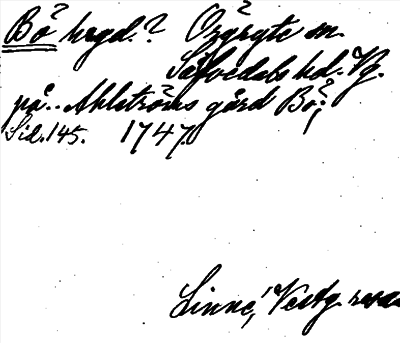 Bö hrgd.? Örgryte sn.
Säfvedals hd. Vg.
på.. Ahlströms gård Bö;
Sid. 145. 1747.
Linné, Vestg. resa